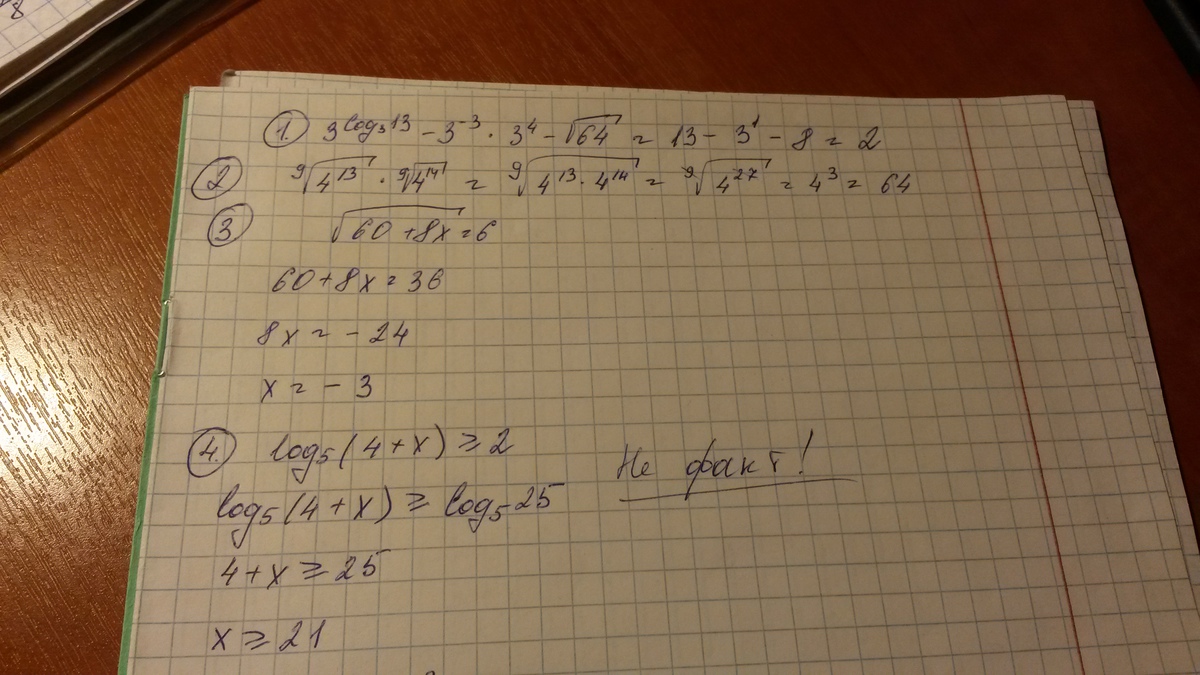 1) 3^log₃13 - 3⁻³ · 3⁴ - √64 = 13 - 3¹ - 8 = 2
2) ⁹√4¹³ · ⁹√4¹⁴ = ⁹√4¹³·4¹⁴ = ⁹√4²⁷ = 4³ = 64
3) √60+8x = 6
60+8x = 36
8x = -24
x = -3
4. log₅(4+x) ≥ 2
Не факт!
log₅(4+x) ≥ log₅25
4+x ≥ 25
x ≥ 21